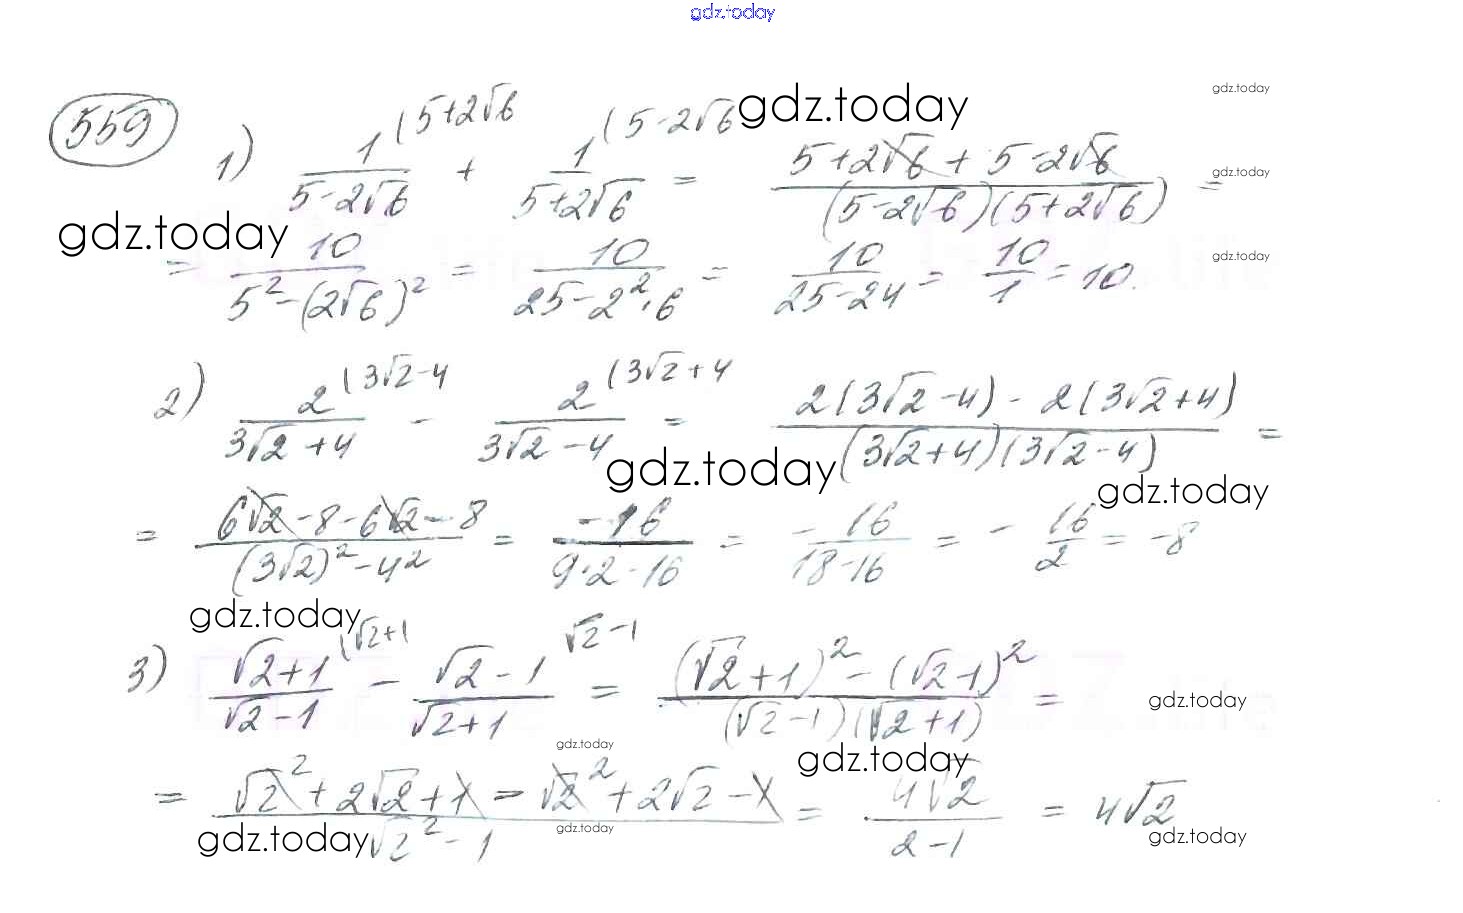 gdz.today
559
1) 1/(5-2√6) (5+2√6 + 1/(5+2√6) (5-2√6 = (5+2√6 + 5-2√6)/((5-2√6)(5+2√6)) =
gdz.today
gdz.today
gdz.today
gdz.today
= 10/(5²-(2√6)²) = 10/(25-2²·6) = 10/(25-24) = 10/1 = 10.
gdz.today
2) 2/(3√2+4) (3√2-4 - 2/(3√2-4) (3√2+4 = (2(3√2-4) - 2(3√2+4))/((3√2+4)(3√2-4)) =
gdz.today
gdz.today
= (6√2-8-6√2-8)/((3√2)²-4²) = -16/(9·2-16) = -16/(18-16) = -16/2 = -8
gdz.today
3) (√2+1)/(√2-1) (√2+1 - (√2-1)/(√2+1) √2-1 = ((√2+1)² - (√2-1)²)/((√2-1)(√2+1)) =
gdz.today
gdz.today
gdz.today
= (√2²+2√2+1-√2²+2√2-1)/(√2²-1) = 4√2/(2-1) = 4√2
gdz.today
gdz.today
gdz.today